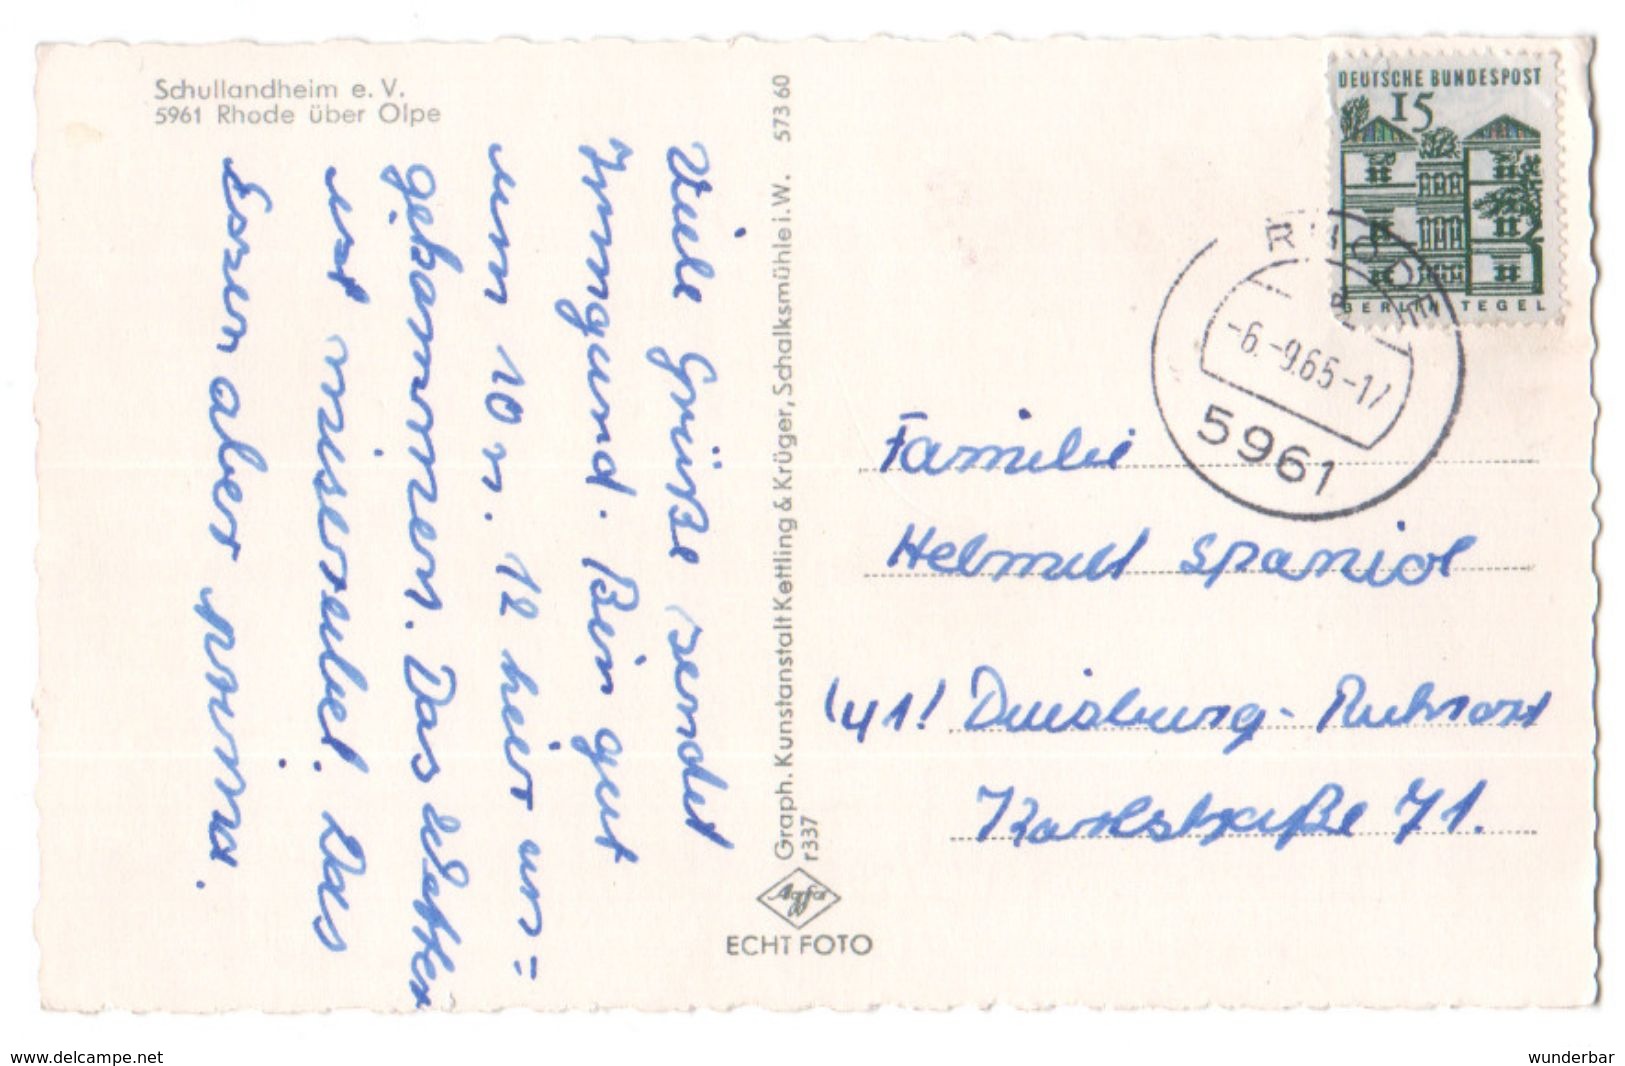 Schullandheim e. V.
5961 Rhode über Olpe
Viele Grüße sendet
Irmgard. Bin gut
um 10 n. 12 hier an=
gekommen. Das Wetter
ist miserabel. Das
Essen aber prima.
Graph. Kunstanstalt Kettling & Krüger, Schalksmühle i. W. 573 60
r 337
Agfa
ECHT FOTO
DEUTSCHE BUNDESPOST
15
BERLIN TEGEL
RHODE
-6.-9.65-17
5961
Familie
Helmut Spaniol
(41) Duisburg-Ruhrort
Karlstraße 71.
www.delcampe.net
wunderbar